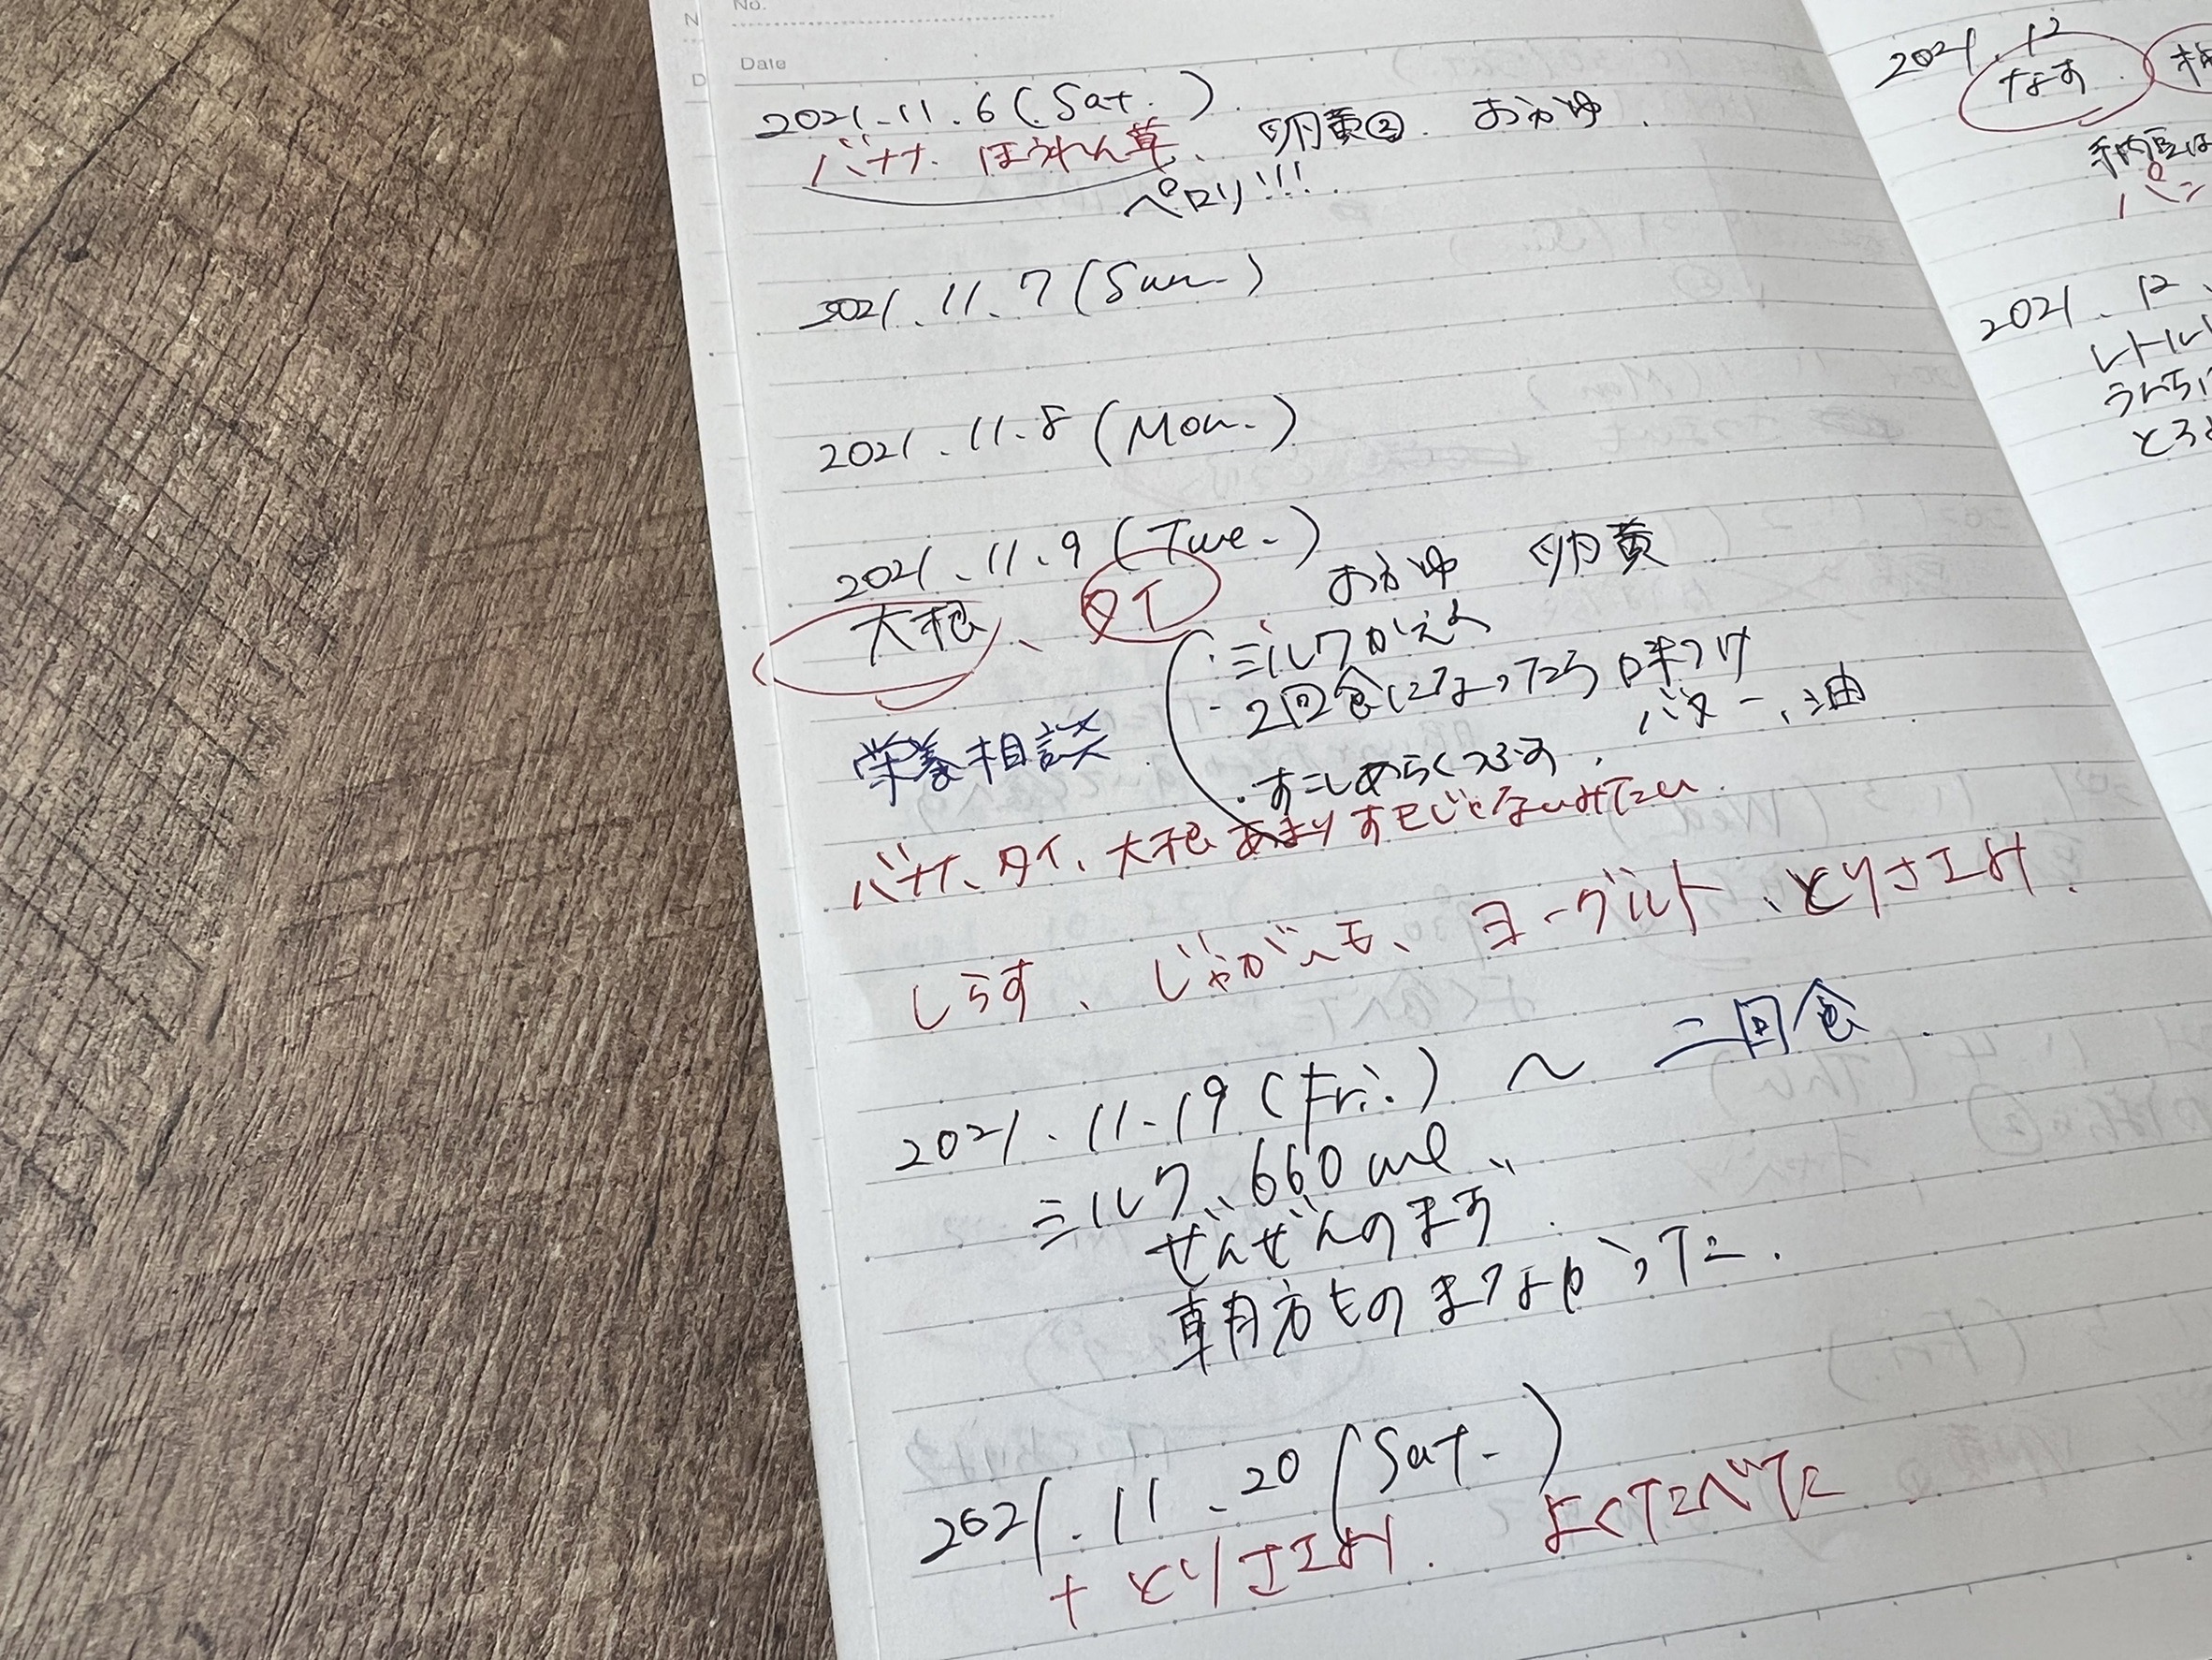 No.
Date
2021.11.6(Sat.)
バナナ、ほうれん草、卵黄②. おかゆ.
ペロリ!!!
2021.11.7(Sun.)
2021.11.8(Mon.)
2021.11.9(Tue.)
大根、タイ おかゆ 卵黄
・ミルクがえん
・2回食になったら味つけ
バター、油
栄養相談
・すこしあらくつぶす.
バナナ、タイ、大根 あまりすきじゃないみたい.
しらす、じゃがいも、ヨーグルト、とりささみ.
2021.11.19(Fri.)〜 二回食.
ミルク、660ml
ぜんぜんのまず.
朝方ものまなかった.
2021.11.20(Sat.)
+とりささみ. よくたべた
2021.12
なす
納豆は
パン
2021.12.
レトルト
うらら
とろ